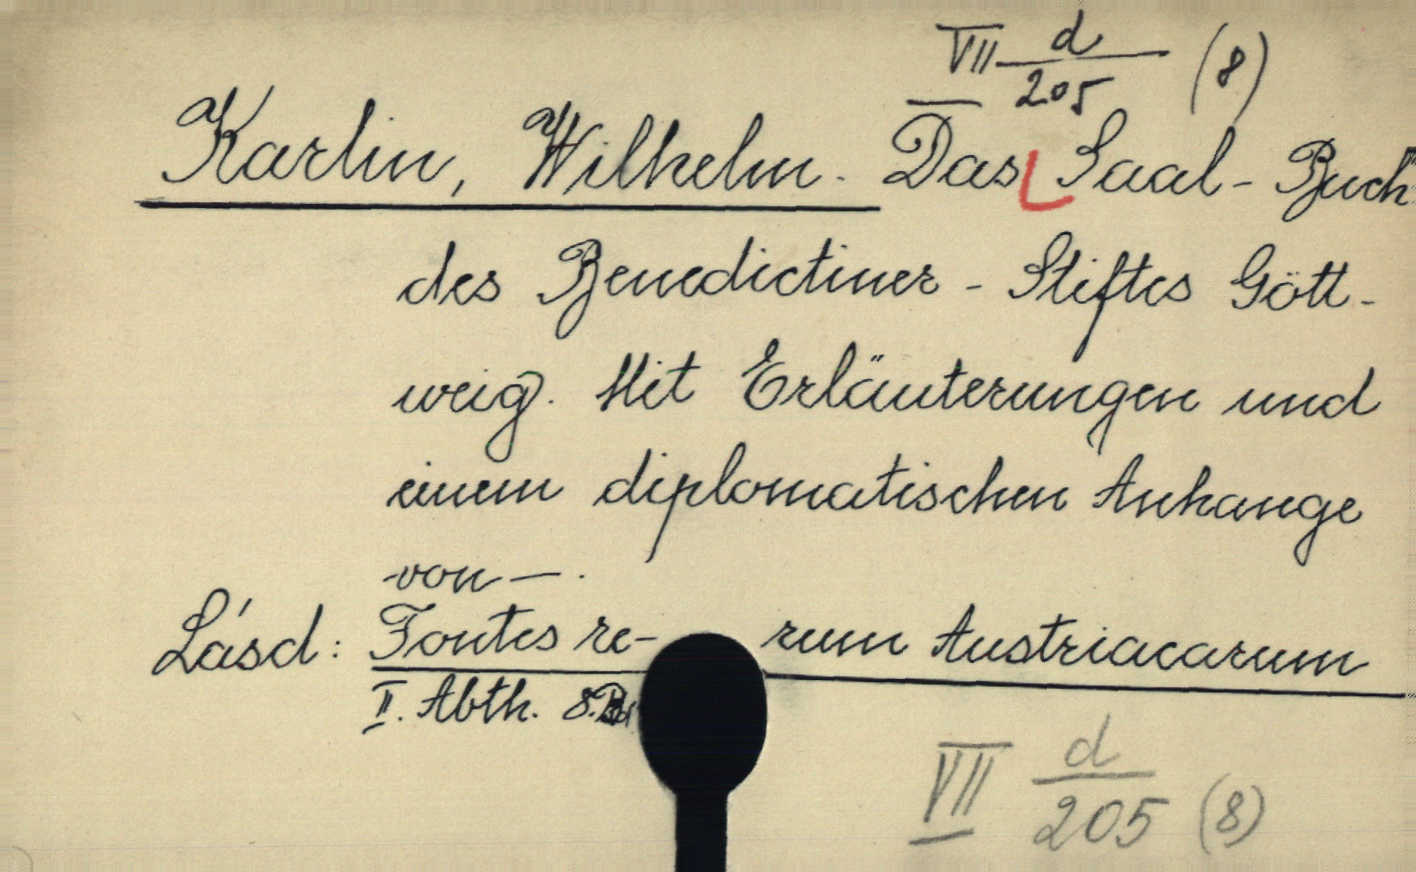 VII d/205 (8)
Karlin, Wilhelm. Das Saal-Buch
des Benedictiner-Stiftes Gött-
weig. Mit Erläuterungen und
einem diplomatischen Anhange
von —.
Lásd: Fontes re- rum Austriacarum
II. Abth. 8. Bd
VII d/205 (8)